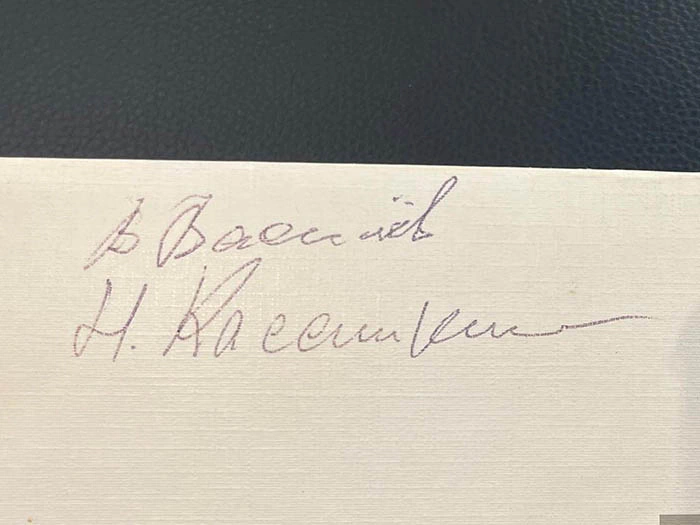 В Васильев
Н. Касаткина